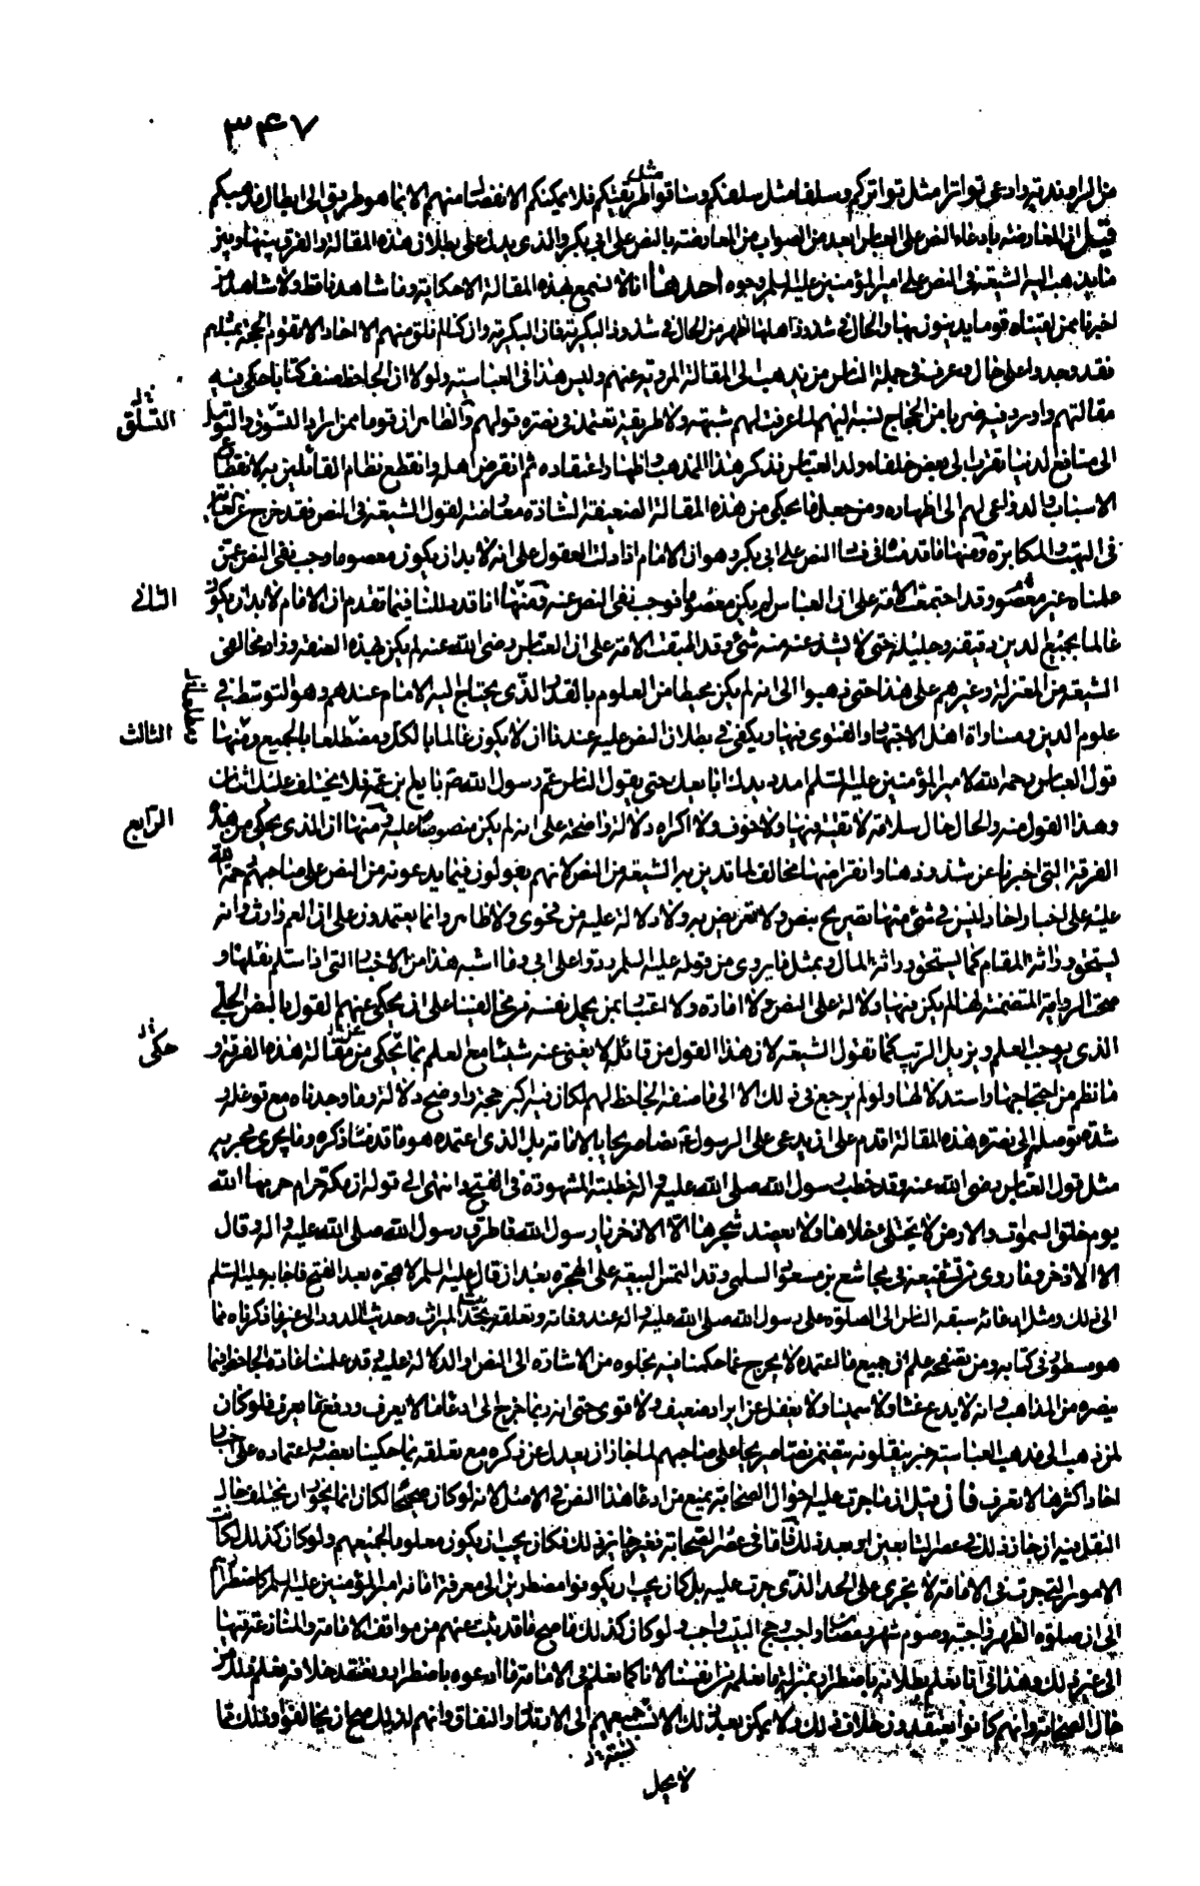 ٣٤٧
من الراوندية وادعى تواترا مثل تواتركم وسلفا مثل سلفكم وساقوا طريقتكم فلا يمكنكم الانفصال منهم الا بما هو طريق الى ابطال مذهبكم
مثل
قيل ان المعارضة بادعاء النص على العباس ابعد من الصواب من المعارضة بالنص على ابي بكر والذي يدل على بطلان هذه المقالة والفرق بينها وبين
ما يذهب اليه الشيعة في النص على امير المؤمنين عليه السلم وجوه احدها انا لا نسمع بهذه المقالة الا حكاية وما شاهدنا قط ولا شاهد من
اخبرنا ممن لقيناه قوما يدينون بها والحال في شذوذ اهلها اظهر من الحال في شذوذ البكرية فان البكرية وان كنا لم نلق منهم الا احادا لا تقوم الحجة بمثلهم
فقد وجدوا على حال وعرف في جملة الناس من يذهب الى المقالة المروية عنهم وليس هذا في العباسية ولولا ان الجاحظ صنف كتابا حكى فيه
مقالتهم واورد فيه ضربا من الحجاج نسبه اليهم لما عرفت لهم شبهة ولا طريقة تعتمد في نصرة قولهم والظاهر ان قوما ممن اراد التسوق والتوصل
التسلق
الى منافع الدنيا تقرب الى بعض خلفاء ولد العباس بذكر هذا المذهب واظهار اعتقاده ثم انقرض اهله وانقطع نظام القائلين به لانقطاع
الاسباب والدواعي لهم الى اظهاره ومن جعل ما يحكى من هذه المقالة الضعيفة الشاذة معارضة لقول الشيعة في النص فقد خرج عن الغاية
في البهت والمكابرة ومنها ما قدمناه في فساد النص على ابي بكر وهو ان الامام اذا دلت العقول على انه لا بد ان يكون معصوما وجب نفي النص عمن
علمناه غير معصوم وقد اجتمعت الامة على ان العباس لم يكن معصوما فوجب نفي النص عنه ومنها انا قد دللنا فيما تقدم ان الامام لا بد ان يكون
الثاني
عالما بجميع الدين دقيقه وجليله حتى لا يشذ عنه منه شئ وقد اطبقت الامة على ان العباس رضى الله عنه لم يكن بهذه الصفة وزاد مخالفي
الشيعة من المعتزلة وغيرهم على هذا حتى ذهبوا الى انه لم يكن محيطا من العلوم بالقدر الذي يحتاج اليه الامام عندهم وهو التوسط في
علوم الدين ومساواة اهل الاجتهاد والفتوى فيها ويكفي في بطلان النص عليه عندنا ان لا يكون عالما بالكل ومضطلعا بالجميع ومنها
الثالث
قول العباس رحمه الله لامير المؤمنين عليه السلم امدد يدك ابايعك حتى يقول الناس عم رسول الله ص بايع ابن عمه فلا يختلف عليك اثنان
وهذا القول منه والحال حال سلامة لا تقية فيها ولا خوف ولا اكراه دلالة واضحة على انه لم يكن منصوصا عليه ومنها ان الذي يحكى من هذه
الرابع
الفرقة التي اخبرنا عن شذوذها وانقراضها مخالف لما تدين به الشيعة من النص لانهم يعولون فيما يدعونه من النص على صاحبهم رحمة الله
عليه على اخبار احاد ليس في شئ منها تصريح بنص ولا تعريض به ولا دلالة عليه من فحوى ولا ظاهر وانما يعتمدون على ان العم وارث وانه
يستحق وراثة المقام كما يستحق وراثة المال وبمثل ما يروى من قوله عليه السلم ردوا على ابي وما اشبه هذا من الاخبار التي اذا سلم نقلها و
صحت الرواية المتضمنة لها لم يكن فيها دلالة على النص ولا امارة ولا اعتبار بمن يحمل نفسه من مخالفينا على ان يحكى عنهم القول بالنص الجلي
الذي يوجب العلم ويزيل الريب كما تقول الشيعة لان هذا القول من قائله لا يغني عنه شيئا مع العلم بما يحكى من مقالة هذه الفرقة و
حكى
ما نظم من احتجاجها واستدلالها ولو لم يرجع في ذلك الا الى ما صنفه الجاحظ لهم لكان فيه اكبر حجة واوضح دلالة وما وجدناه مع توغله و
شدة توصله الى نصرة هذه المقالة اقدم على ان يدعى على الرسول ص نصا صريحا بالامامة بل الذي اعتمده هو ما قدمنا ذكره وما يجري مجراه
مثل قول العباس رضى الله عنه وقد خطب رسول الله صلى الله عليه واله خطبته المشهورة في الفتح وانتهى الى قوله ان مكة حرام حرمها الله
يوم خلق السموات والارض لا يختلى خلاها ولا يعضد شجرها الا الاذخر يا رسول الله فاطرق رسول الله صلى الله عليه واله وقال
الا الاذخر وما روى من تشفيعه في مجاشع بن مسعود السلمى وقد التمس البيعة على الهجرة بعد ان قال عليه السلم لا هجرة بعد الفتح فاجابه عليه السلم
الى ذلك ومثل ادعائه سبقه الناس الى الصلوة على رسول الله صلى الله عليه واله عند وفاته وتعلقه بحديث الميراث وحديث اللدود الى غير ما ذكرناه مما
هو مسطور في كتابه ومن تصفحه علم ان جميع ما اعتمده لا يخرج عما حكمنا فيه بخلوه من الاشارة الى النص او الدلالة عليه وقد علمنا عادة الجاحظ فيما
ينصره من المذاهب وانه لا يدع غثا ولا سمينا ولا يغفل عن ايراد ضعيف ولا قوى حتى انه ربما خرج الى ادعاء ما لا يعرف ودفع ما يعرف فلو كان
لمن ذهب الى مذهب العباسية خبر ينقلونه يتضمن نصا صريحا على صاحبهم لما جاز ان يعدل عن ذكره مع تعلقه بما حكينا بعضه واعتماده على اخبار
احاد اكثرها لا تعرف فان قيل ان ما جرت عليه احوال الصحابة يمنع من ادعاء هذا النص في الاصل لانه لو كان صحيحا لكان انما يجوز ان يختلف حال
النقل فيه ان جاز ذلك في عصر التابعين او بعد ذلك فاما في عصر الصحابة فغير جائز ذلك فكان يجب ان يكون معلوما لجميعهم ولو كان كذلك لكانت
الامور التي جرت في الامامة لا تجرى على الحد الذي جرت عليه بل كان يجب ان يكونوا مضطرين الى معرفة امامة امير المؤمنين عليه السلم كاضطرارهم
الى ان صلوة الظهر واجبة وصوم شهر رمضان واجب وحج البيت واجب ولو كان كذلك ما صح ما قد ثبت عنهم من مواقف الامامة والمنازعة فيها
الى غير ذلك وهذا في انا نعلم بطلانه باضطرار بمنزلة ما نعلمه من انفسنا لانا كما نعلم في الامامة ما ادعوه باضطرار ونعتقد خلافه نعلم ذلك من
حال الصحابة وانهم كانوا يعتقدون خلاف ذلك ولا يمكن بعد ذلك الا نسب جميعهم الى الارتداد والنفاق وانهم لذلك صح ان يخالفوا وذلك مما
لاجل